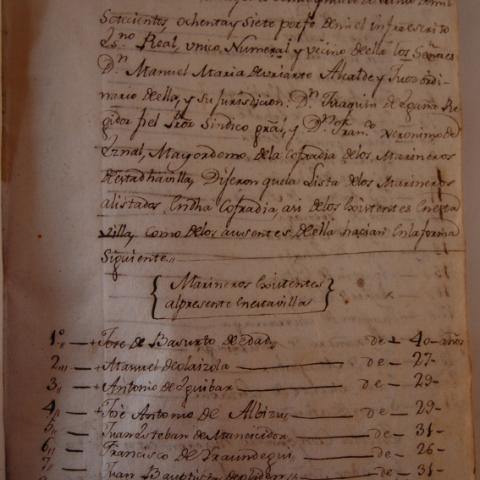 Setecientos, ochenta y Siete por fe de mi el infraescrito
Ess.no Real, unico, Numeral y vecino de ella los Señores
D.n Manuel Maria de Uriarte Alcalde y Juez ordi-
nario de ella, y su Jurisdicion: D.n Joaquin de Re-
gidor fiel Sindico gral, y D.n Fran.co Veronimo de
Mayordomo de la cofradia de los Marineros
de esta dha villa, Dijeron que la Lista de los Marineros
alistados, En dha Cofradia, asi de los Existentes En esta
villa, como de los ausentes de ella hacian En la forma
Siguiente
Marineros Existentes
al presente En esta villa
1.º — + Jose de Basurto de edad, — de — 40 — años
2 — + Manuel de Olaizola — de — 27 -
3 — + Antonio de Eguibar — de — 29 -
4 — + Jose Antonio de Albizu — de — 29 -
5 — Juan Esteban de Mancicidor — de — 31 -
6 — Francisco de Yraundegui — de — 26 -
7 — Juan Bauptista de — de — 31 -